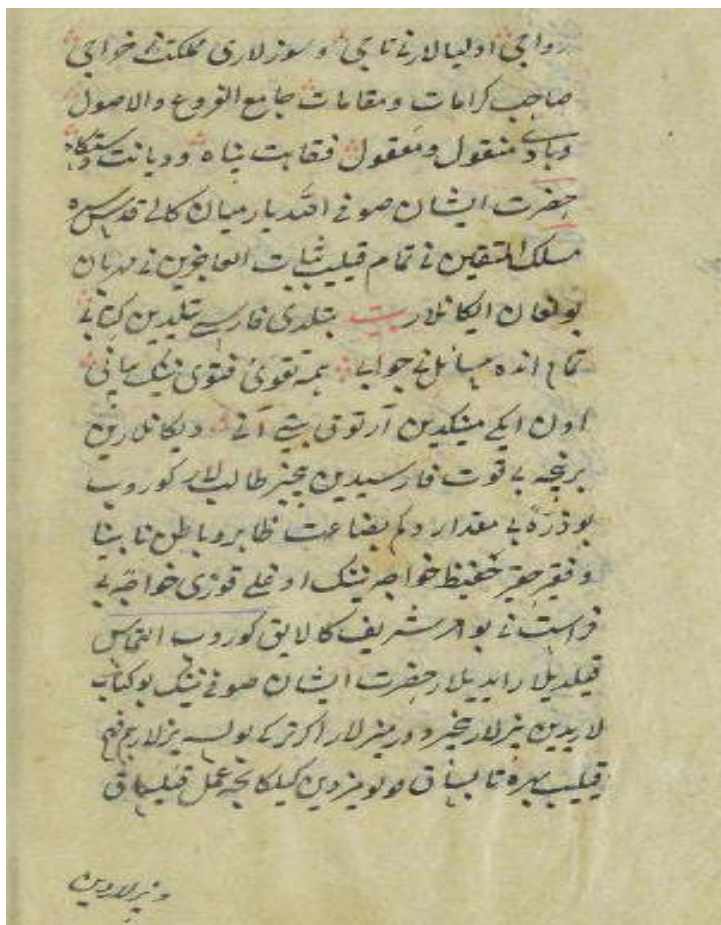 رواجی اولیالارنی تاجی و سوزلاری مملکت نی خواجی
صاحب کرامات و مقامات جامع الفروع والاصول
وهادئ منقول و معقول فقاهت پناه و دیانت دستکاه
حضرت ایشان صوفی الله یار میان کالی قدس سره
مسلک المتقین نی تمام قیلیب ثبات العاجزین نی دربیان
بولغان ایکانلار بیت بتلدی فارسی تیلدین کتابی
تمام انده مسائل نی جوابی بمه تقوی فتوی نینک بیانی
اون ایکی مینکدین آرتوق بیتی آنی دیکانلارین
برنچه بی قوت فارسیدین بیخبر طالب لار کوروب
بو ذره بی مقدار و کم بضاعت ظاهر و باطن نابینا
و فقیر حقیر حفیظ خواجه نینک اوغلی قوزی خواجه بی
فراست نی بو امر شریف کا لایق کوروب التماس
قیلدیلار ایدیلار حضرت ایشان صوفی نینک بو کتاب
لاریدین بیزلار بیخبر دورمیزلار اکر ترکی بولسه بیزلار هم فهم
قیلیب بهره تابساق قولومیزدین کیلکانچه عمل قیلساق
و بیزلاردین